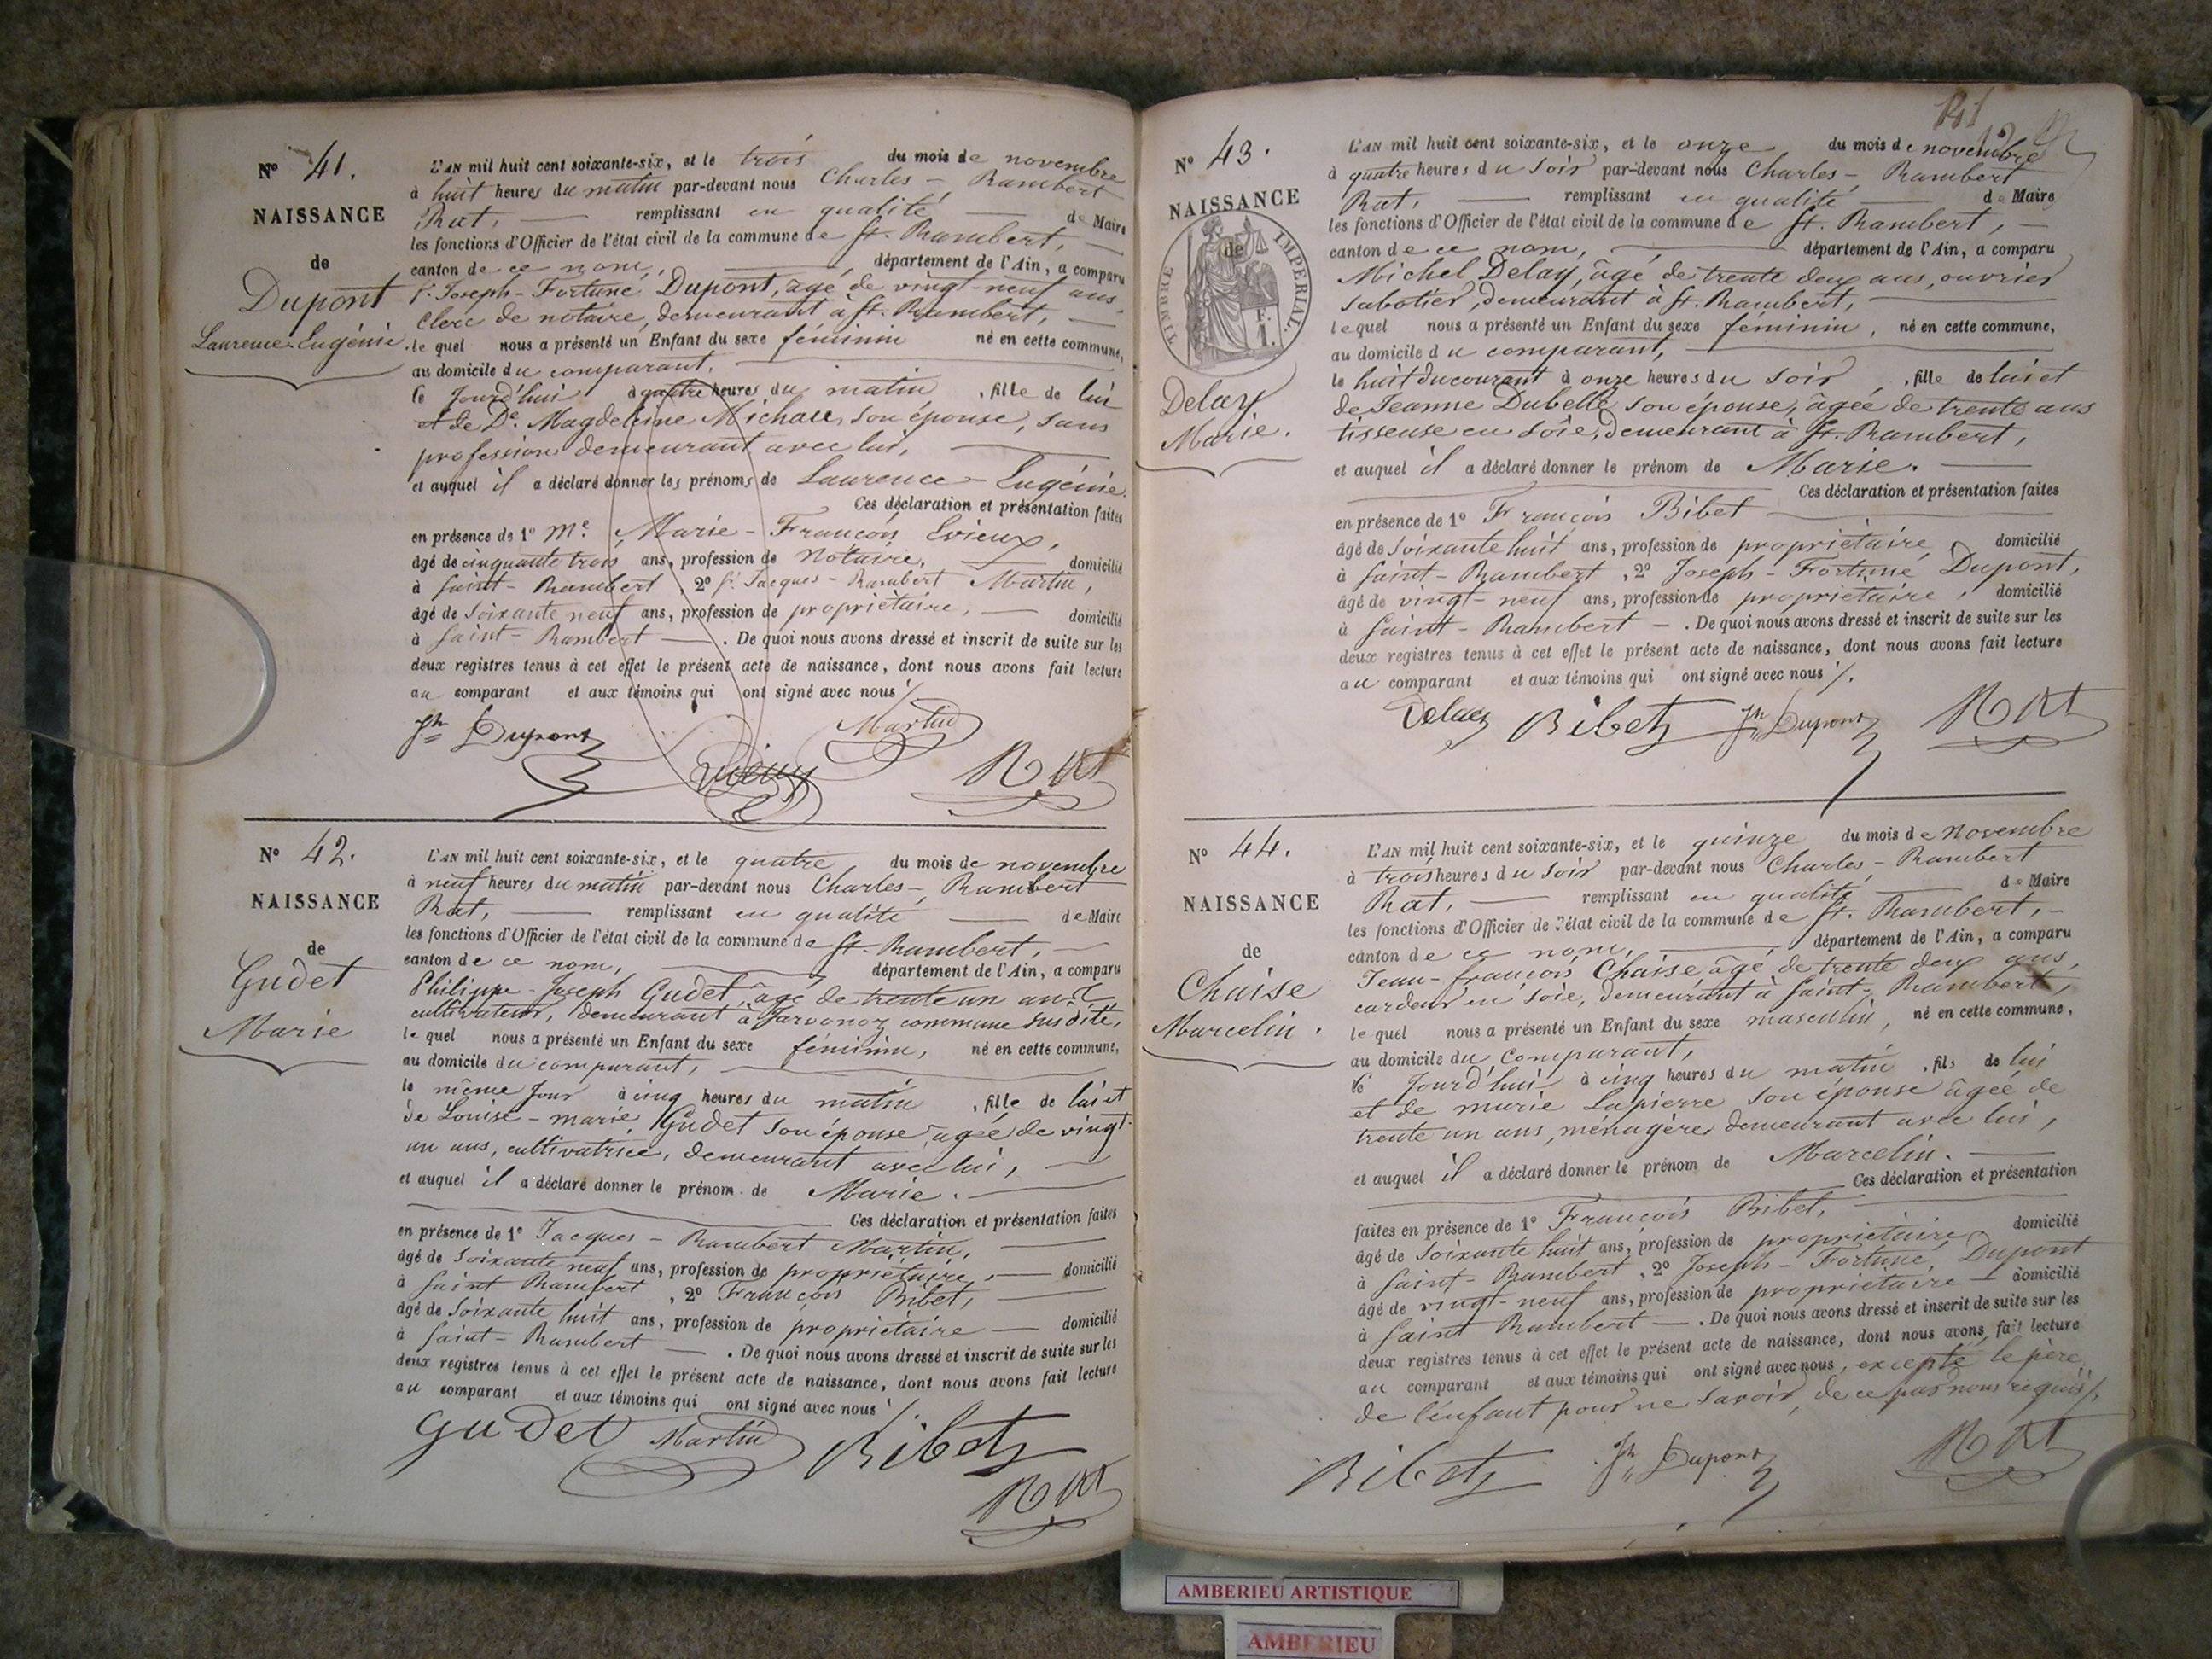 N° 41.
NAISSANCE
de
Dupont
Laurence-Eugénie.
L'AN mil huit cent soixante-six, et le trois du mois de novembre
à huit heures du matin par-devant nous Charles-Rambert
Rat, remplissant en qualité de Maire
les fonctions d'Officier de l'état civil de la commune de St. Rambert,
canton de ce nom, département de l'Ain, a comparu
Sr. Joseph-Fortuné Dupont, âgé de vingt-neuf ans,
clerc de notaire, demeurant à St. Rambert,
le quel nous a présenté un Enfant du sexe féminin né en cette commune,
au domicile du comparant,
le jourd'hui à quatre heures du matin, fille de lui
et de De. Magdeleine Michau, son épouse, sans
profession demeurant avec lui,
et auquel il a déclaré donner les prénoms de Laurence-Eugénie.
Ces déclaration et présentation faites
en présence de 1° Me. Marie-François Evieux,
âgé de cinquante trois ans, profession de Notaire, domicilié
à Saint-Rambert, 2° Sr. Jacques-Rambert Martin,
âgé de soixante neuf ans, profession de propriétaire, domicilié
à Saint-Rambert. De quoi nous avons dressé et inscrit de suite sur les
deux registres tenus à cet effet le présent acte de naissance, dont nous avons fait lecture
au comparant et aux témoins qui ont signé avec nous ./.
Jh Dupont
Martin
Evieux
Rat
N° 42.
NAISSANCE
de
Gudet
Marie
L'AN mil huit cent soixante-six, et le quatre, du mois de novembre
à neuf heures du matin par-devant nous Charles-Rambert
Rat, remplissant en qualité de Maire
les fonctions d'Officier de l'état civil de la commune de St. Rambert,
canton de ce nom, département de l'Ain, a comparu
Philippe-Joseph Gudet, âgé de trente un ans,
cultivateur, demeurant à Javornoz commune susdite,
le quel nous a présenté un Enfant du sexe féminin, né en cette commune,
au domicile du comparant,
le même jour à cinq heures du matin, fille de lui et
de Louise-Marie Gudet son épouse, âgée de vingt-
un ans, cultivatrice, demeurant avec lui,
et auquel il a déclaré donner le prénom de Marie.
Ces déclaration et présentation faites
en présence de 1° Jacques-Rambert Martin,
âgé de soixante neuf ans, profession de propriétaire, domicilié
à Saint Rambert, 2° François Bibet,
âgé de soixante huit ans, profession de propriétaire domicilié
à Saint-Rambert. De quoi nous avons dressé et inscrit de suite sur les
deux registres tenus à cet effet le présent acte de naissance, dont nous avons fait lecture
au comparant et aux témoins qui ont signé avec nous ./.
Gudet Martin Bibet
Rat
141
N° 43.
NAISSANCE
TIMBRE IMPERIAL.
de
F.
1.
Delay
Marie.
L'AN mil huit cent soixante-six, et le onze du mois de novembre
à quatre heures du soir par-devant nous Charles-Rambert
Rat, remplissant en qualité de Maire
les fonctions d'Officier de l'état civil de la commune de St. Rambert,
canton de ce nom, département de l'Ain, a comparu
Michel Delay, âgé de trente deux ans, ouvrier
sabotier, demeurant à St. Rambert,
lequel nous a présenté un Enfant du sexe féminin, né en cette commune,
au domicile du comparant,
le huit du courant à onze heures du soir, fille de lui et
de Jeanne Dubelle son épouse, âgée de trente ans
tisseuse en soie, demeurant à St. Rambert,
et auquel il a déclaré donner le prénom de Marie.
Ces déclaration et présentation faites
en présence de 1° François Bibet
âgé de soixante huit ans, profession de propriétaire domicilié
à Saint-Rambert, 2° Joseph-Fortuné Dupont,
âgé de vingt-neuf ans, profession de propriétaire, domicilié
à Saint-Rambert. De quoi nous avons dressé et inscrit de suite sur les
deux registres tenus à cet effet le présent acte de naissance, dont nous avons fait lecture
au comparant et aux témoins qui ont signé avec nous ./.
Delay Bibet Jh Dupont Rat
N° 44.
NAISSANCE
de
Chaise
Marcelin.
L'AN mil huit cent soixante-six, et le quinze du mois de Novembre
à trois heures du soir par-devant nous Charles-Rambert
Rat, remplissant en qualité de Maire
les fonctions d'Officier de l'état civil de la commune de St. Rambert,
canton de ce nom, département de l'Ain, a comparu
Jean-François Chaise âgé de trente deux ans,
cardeur en soie, demeurant à Saint-Rambert,
le quel nous a présenté un Enfant du sexe masculin, né en cette commune,
au domicile du comparant,
le jourd'hui à cinq heures du matin, fils de lui
et de marie Lapierre son épouse âgée de
trente un ans, ménagère, demeurant avec lui,
et auquel il a déclaré donner le prénom de Marcelin.
Ces déclaration et présentation
faites en présence de 1° François Bibet,
âgé de soixante huit ans, profession de propriétaire domicilié
à Saint-Rambert, 2° Joseph-Fortuné Dupont
âgé de vingt-neuf ans, profession de propriétaire domicilié
à Saint Rambert. De quoi nous avons dressé et inscrit de suite sur les
deux registres tenus à cet effet le présent acte de naissance, dont nous avons fait lecture
au comparant et aux témoins qui ont signé avec nous, excepté le père
de l'enfant pour ne savoir, de ce par nous requis ./.
Bibet Jh Dupont Rat
AMBERIEU ARTISTIQUE
AMBERIEU